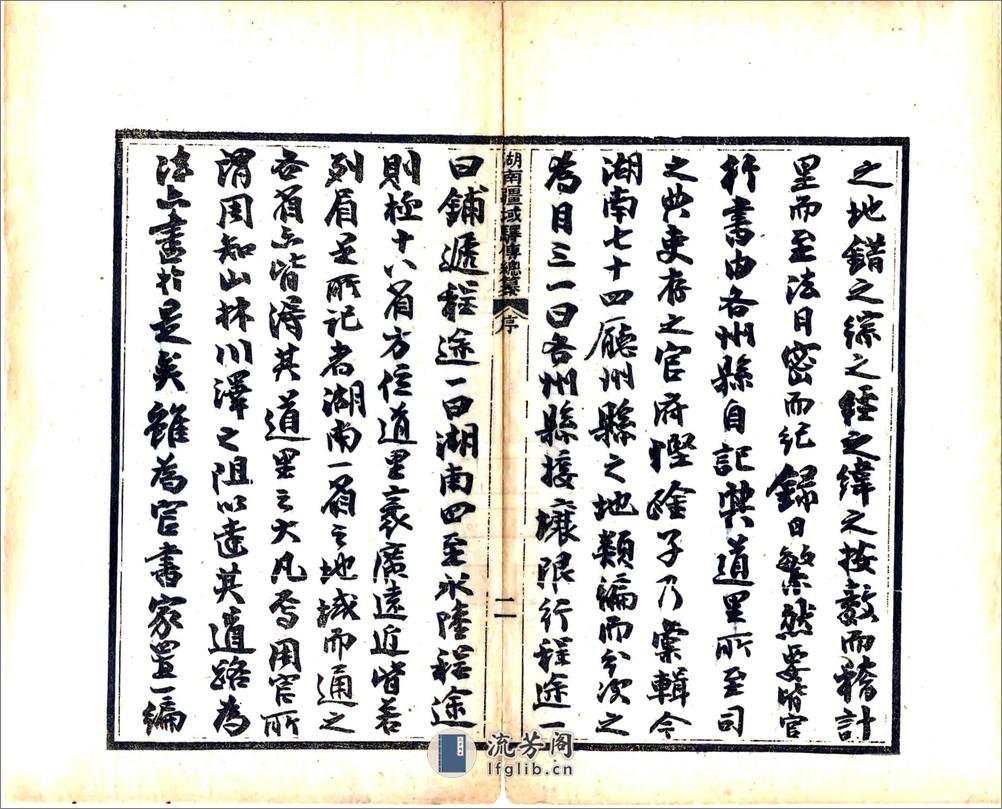 之地錯之綜之經之緯之按數而稽計
里而至法日密而紀錄日繁然要皆官
行書由各州縣自記其道里所至司
之典吏存之官府慳餘子乃彙輯今
湖南七十四廳州縣之地類編而分次之
為目三一曰各州縣接壤限行程途一
湖南疆域驛傳總纂
序
二
曰鋪遞程途一曰湖南四至水陸程途
則極十八省方位道里袤廣遠近皆若
列眉是所記者湖南一省之地域而通之
各省亦皆得其道里之大凡焉周官所
謂周知山林川澤之阻以達其道路為
法亦書於是矣雖為官書家置一編
流芳阁
lfglib.cn